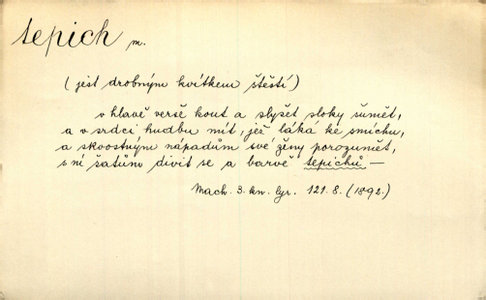 tepich m.
(jest drobným kvítkem štěstí)
v hlavě verše kout a slyšet sloky šumět,
a v srdci hudbu mít, jež láká ke smíchu,
a skvostným nápadům své ženy porozumět,
s ní šatům divit se a barvě tepichů —
Mach. 3. kn. lyr. 121. 8. (1892.)